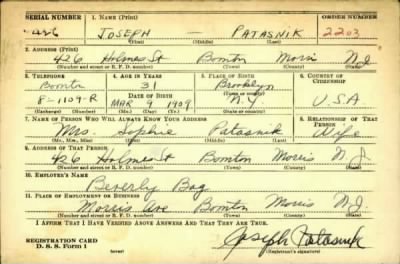 SERIAL NUMBER 1. NAME (Print) ORDER NUMBER
426 JOSEPH — PATASNIK 2203
(First) (Middle) (Last)
2. ADDRESS (Print)
426 Holmes St Boonton Morris N.J.
(Number and street or R. F. D. number) (Town) (County) (State)
3. TELEPHONE 4. AGE IN YEARS 5. PLACE OF BIRTH 6. COUNTRY OF CITIZENSHIP
Boonton 31 Brooklyn
DATE OF BIRTH (Town or county)
8-1109-R MAR 9 1909 N.Y. U.S.A
(Exchange) (Number) (Mo.) (Day) (Yr.) (State or country)
7. NAME OF PERSON WHO WILL ALWAYS KNOW YOUR ADDRESS 8. RELATIONSHIP OF THAT PERSON
Mrs. Sophie Patasnik Wife
(Mr., Mrs., Miss) (First) (Middle) (Last)
9. ADDRESS OF THAT PERSON
426 Holmes St Boonton Morris N.J.
(Number and street or R. F. D. number) (Town) (County) (State)
10. EMPLOYER'S NAME
Beverly Bag
11. PLACE OF EMPLOYMENT OR BUSINESS
Morris Ave Boonton Morris N.J.
(Number and street or R. F. D. number) (Town) (County) (State)
I AFFIRM THAT I HAVE VERIFIED ABOVE ANSWERS AND THAT THEY ARE TRUE.
REGISTRATION CARD
D. S. S. Form 1 (over) Joseph Patasnik
(Registrant's signature)